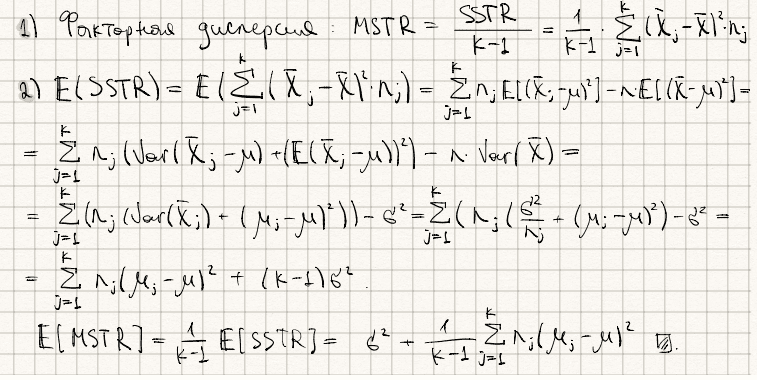 1) Факторная дисперсия: MSTR = SSTR/(k-1) = 1/(k-1) · Σ_{j=1}^{k} (X̄_j - X̄)² · n_j
2) E(SSTR) = E(Σ_{j=1}^{k} (X̄_j - X̄)² · n_j) = Σ_{j=1}^{k} n_j E[(X̄_j - μ)²] - n · E[(X̄ - μ)²] =
= Σ_{j=1}^{k} n_j (Var(X̄_j - μ) + (E(X̄_j - μ))²) - n · Var(X̄) =
= Σ_{j=1}^{k} (n_j (Var(X̄_j) + (μ_j - μ)²)) - σ² = Σ_{j=1}^{k} (n_j (σ²/n_j + (μ_j - μ)²) - σ² =
= Σ_{j=1}^{k} n_j (μ_j - μ)² + (k-1)σ².
E[MSTR] = 1/(k-1) E[SSTR] = σ² + 1/(k-1) Σ_{j=1}^{k} n_j (μ_j - μ)² ▨.